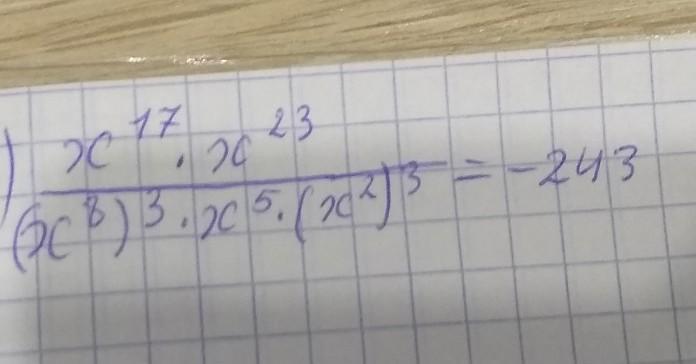 ) x^17 · x^23
(x^8)^3 · x^5 · (x^2)^3 = -243